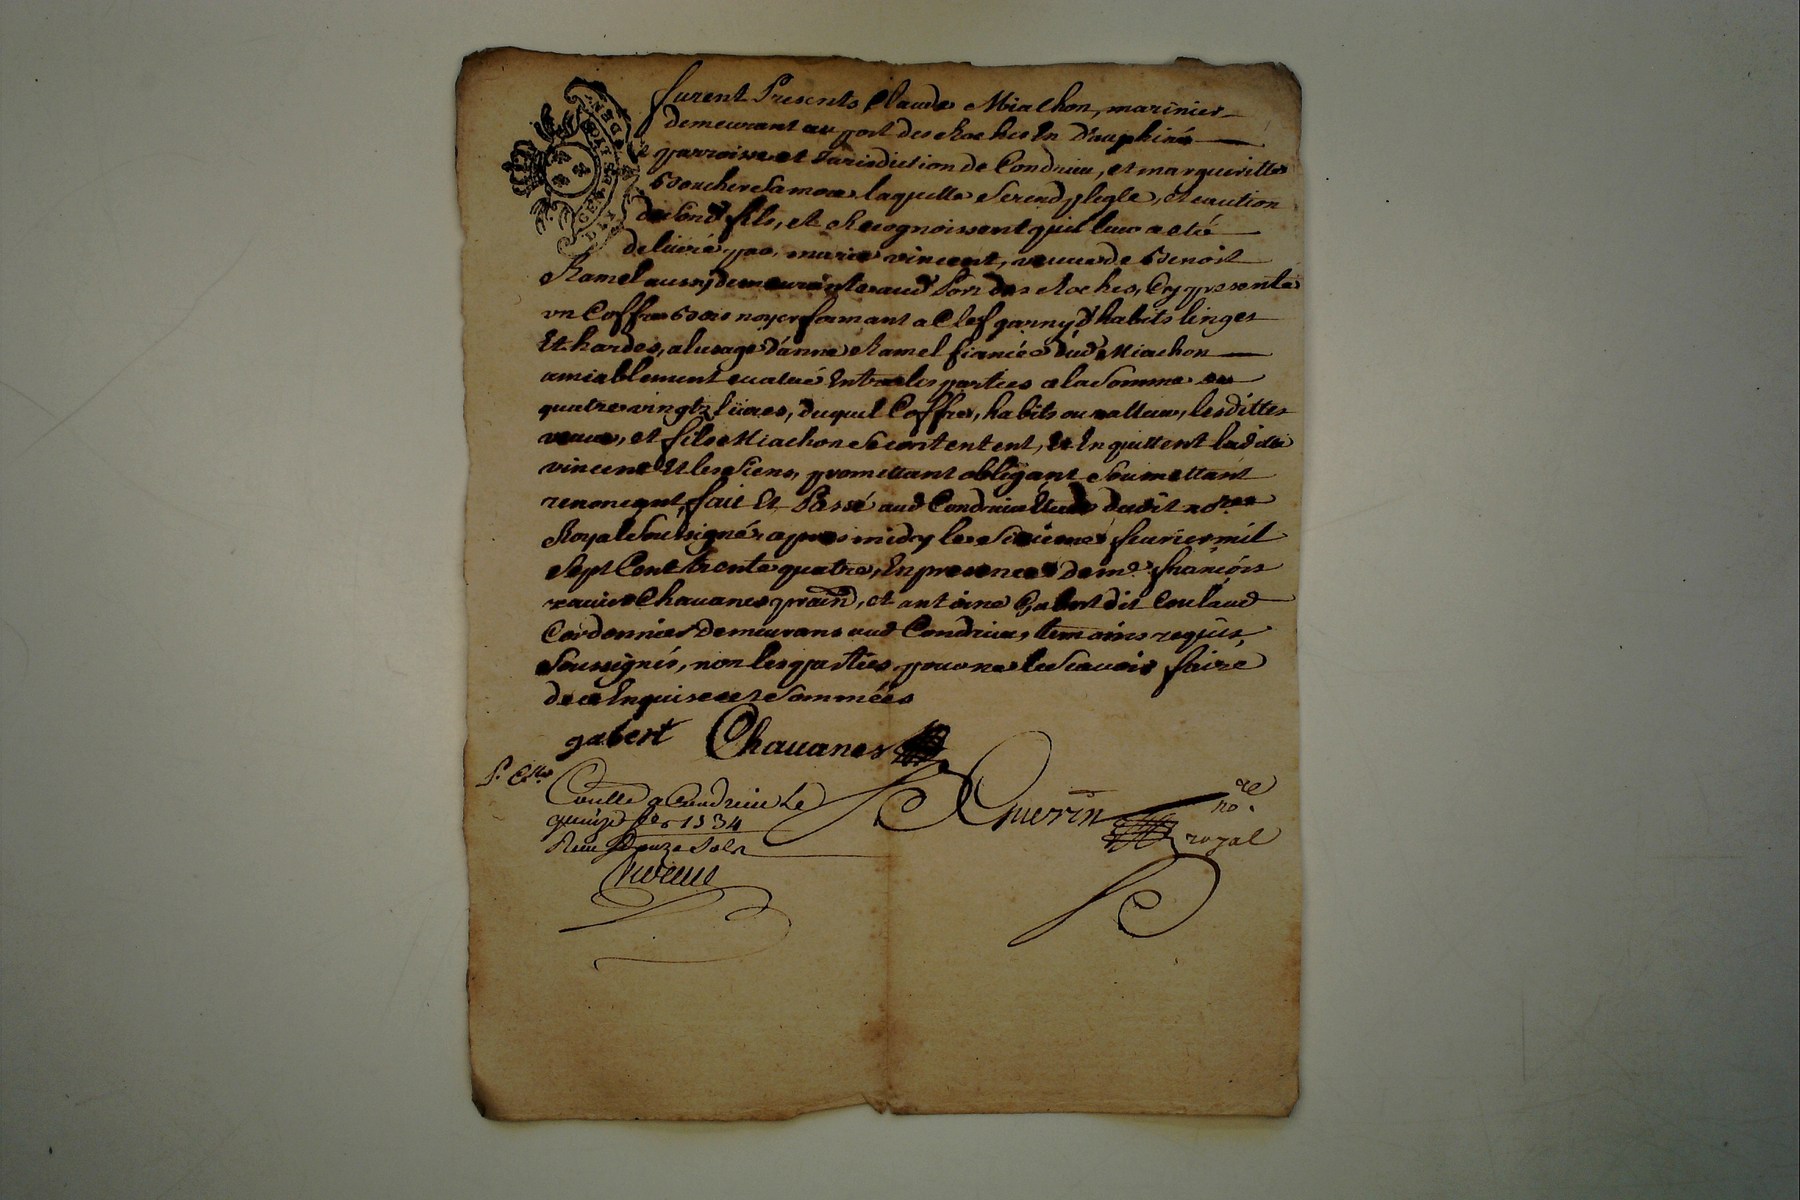 furent Presents Claude Miachon, marinier
demeurant au port des Roches En Dauphiné
parroisse et Jurisdiction de Condrieu, et margueritte
Boucher Sa mere laquelle Se rend plegle, et caution
de Sond fils, et Recognoissent quil leur a eté
delivré par marie vincent, veuve de Benoit
Ramel aussy demeurante aud Port des Roches, Cy presente
vn Coffre Bois noyer fermant a Clef garny d'habits linges
Et hardes, a lusage d'anne Ramel fiancée dud Miachon
amiablement evalué Entre les parties a la Somme de
quatre vingtz livres, duquel Coffre, habits ou valleur, lesdittes
veuve, et fils Miachon Se contentent, Et En quittent laditte
vincent Et les Siens, promettant obligeant Soumettant
renonceant, fait Et Passé aud Condrieu Etude dudit nore
Royal Soussigné, apres midy le Seizieme fevrier mil
Sept Cent trente quatre, En presence de me. françois
xavier Chavanes pratn, et antoine Gabert dit Coulaud
Cordonnier Demeurans aud Condrieu, temoins requis
Soussignés, non les parties pour ne le Scavoir faire
de ce Enquises et Sommées
gabert Chavanes
Guerin nore royal
Conlle a Condrieu le
1734
Reçu Douze Sols